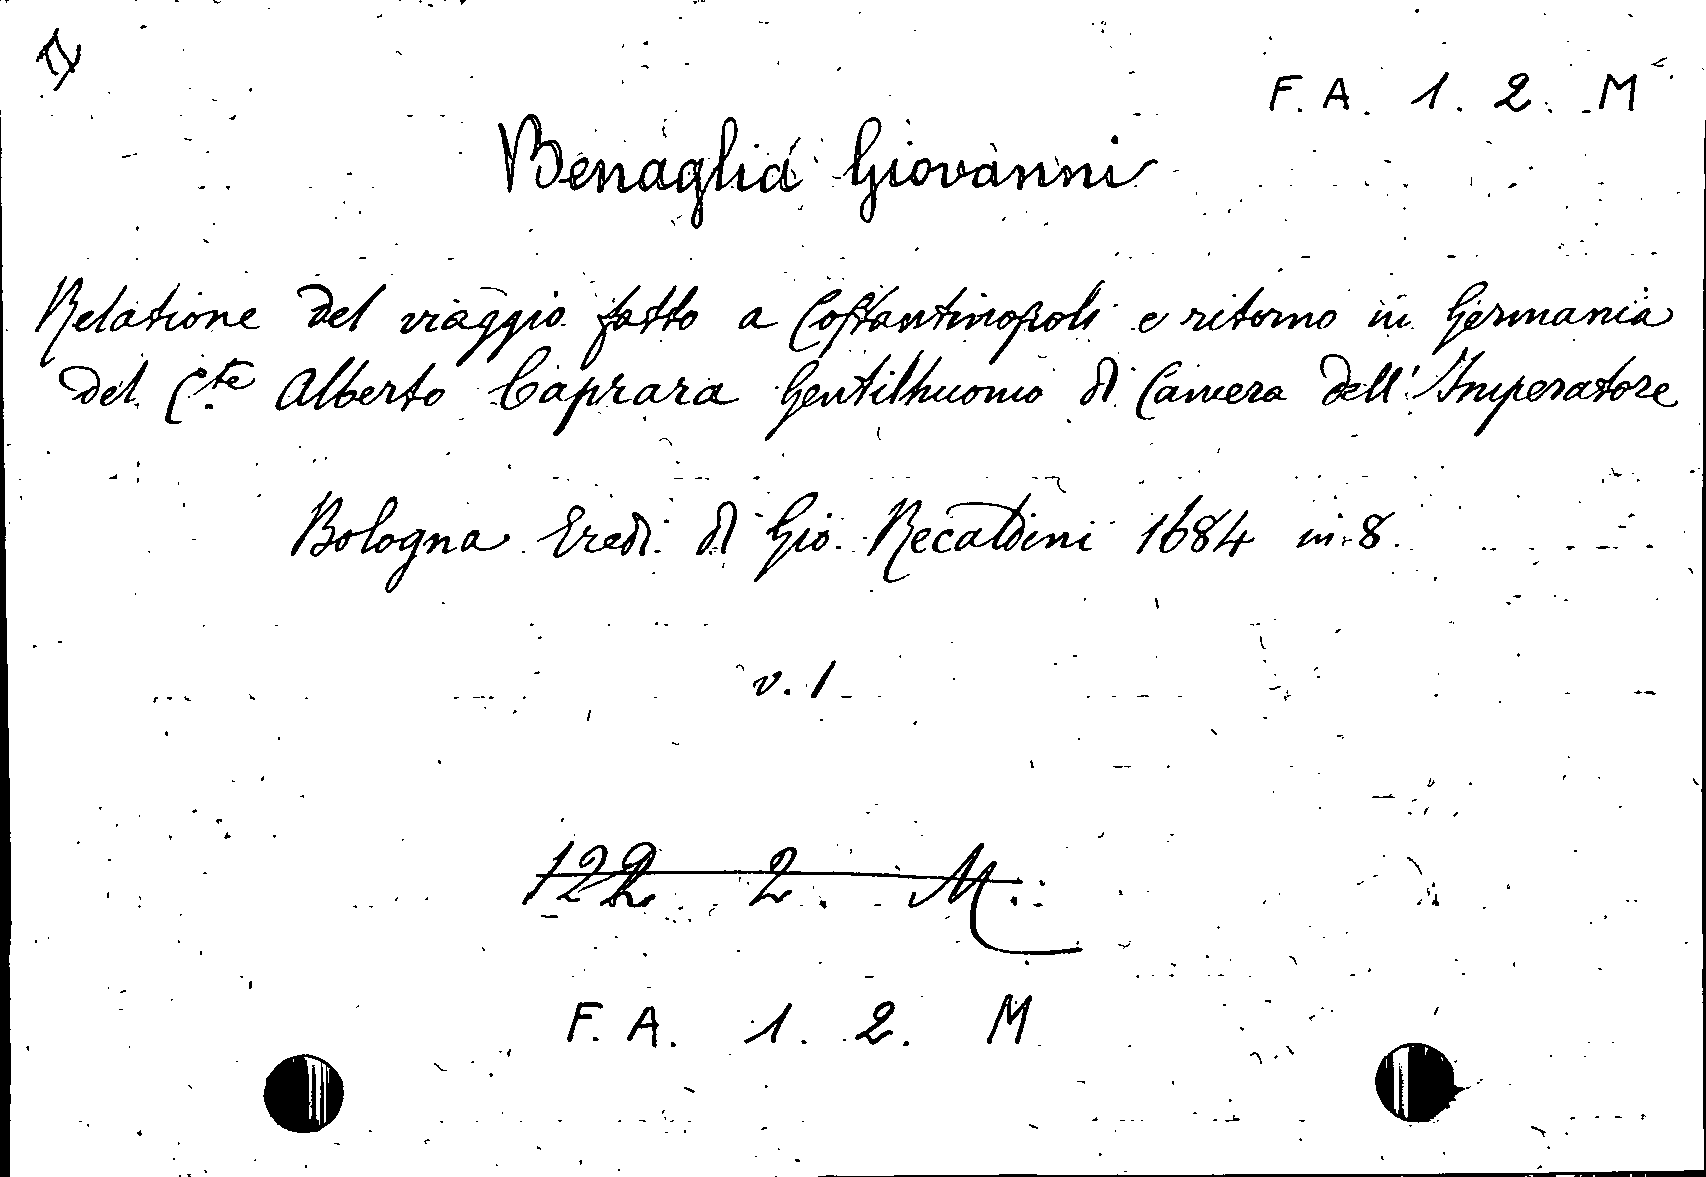 F. A. 1. 2. M
Benaglia Giovanni
Relatione del viaggio fatto a Costantinopoli e ritorno in Germania
del Cte Alberto Caprara Gentilhuomo di Camera dell'Imperatore
Bologna Eredi di Gio. Recaldini 1684 in 8.
v. 1
122 2. M.
F. A. 1. 2. M